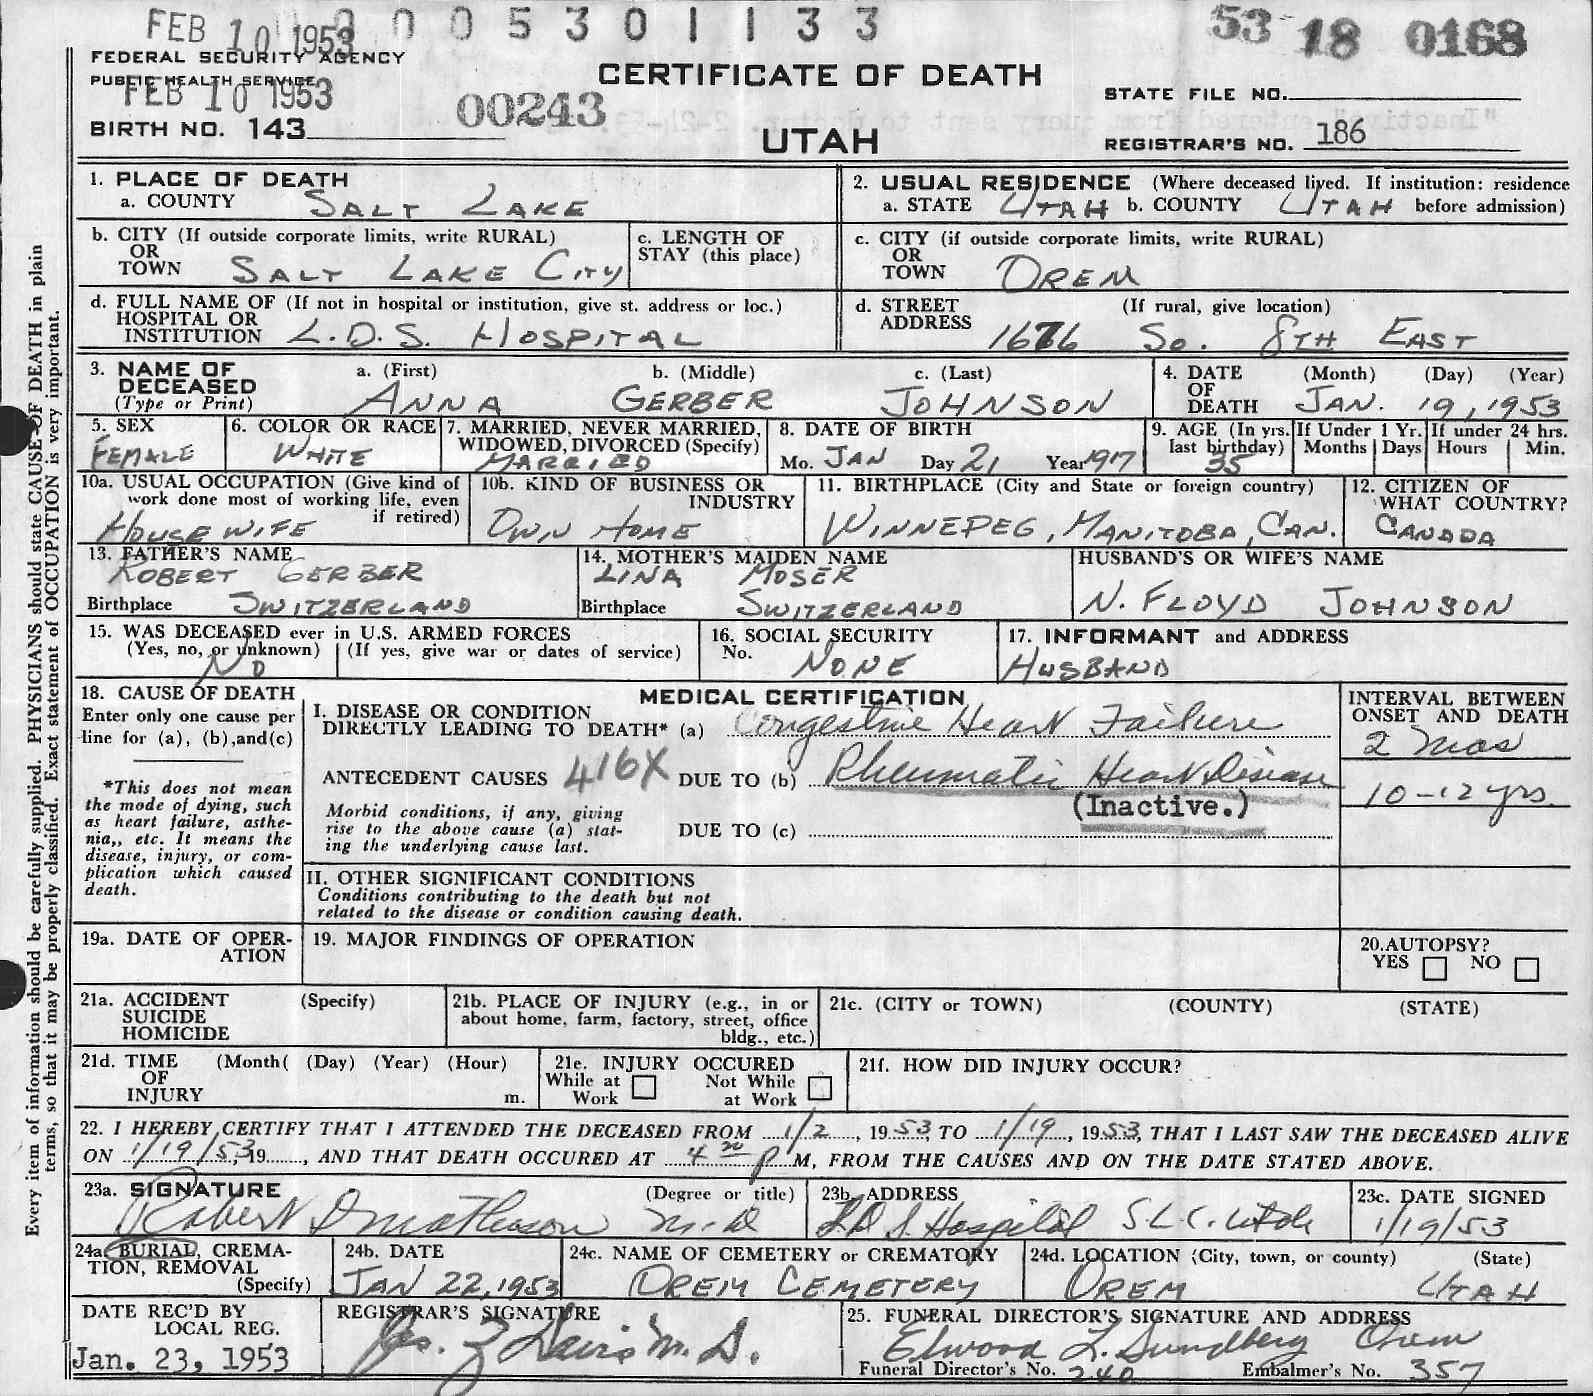 FEB 10 1953
0 0 5 3 0 1 1 3 3
53- 18 0168
FEDERAL SECURITY AGENCY
PUBLIC HEALTH SERVICE
FEB 10 1953
00243
BIRTH NO. 143
CERTIFICATE OF DEATH
UTAH
STATE FILE NO.
REGISTRAR'S NO. 186
1. PLACE OF DEATH
a. COUNTY SALT LAKE
2. USUAL RESIDENCE (Where deceased lived. If institution: residence
a. STATE UTAH b. COUNTY UTAH before admission)
b. CITY (If outside corporate limits, write RURAL)
OR
TOWN SALT LAKE CITY
c. LENGTH OF
STAY (this place)
c. CITY (if outside corporate limits, write RURAL)
OR
TOWN OREM
d. FULL NAME OF (If not in hospital or institution, give st. address or loc.)
HOSPITAL OR
INSTITUTION L.D.S. HOSPITAL
d. STREET (If rural, give location)
ADDRESS 1676 SO. 8TH EAST
3. NAME OF
DECEASED
(Type or Print)
a. (First) b. (Middle) c. (Last)
ANNA GERBER JOHNSON
4. DATE (Month) (Day) (Year)
OF
DEATH JAN. 19, 1953
5. SEX
FEMALE
6. COLOR OR RACE
WHITE
7. MARRIED, NEVER MARRIED,
WIDOWED, DIVORCED (Specify)
MARRIED
8. DATE OF BIRTH
Mo. JAN Day 21 Year 1917
9. AGE (In yrs.
last birthday)
35
If Under 1 Yr.
Months Days
If under 24 hrs.
Hours Min.
10a. USUAL OCCUPATION (Give kind of
work done most of working life, even
if retired)
HOUSEWIFE
10b. KIND OF BUSINESS OR
INDUSTRY
OWN HOME
11. BIRTHPLACE (City and State or foreign country)
WINNEPEG, MANITOBA, CAN.
12. CITIZEN OF
WHAT COUNTRY?
CANADA
13. FATHER'S NAME
ROBERT GERBER
Birthplace SWITZERLAND
14. MOTHER'S MAIDEN NAME
LINA MOSER
Birthplace SWITZERLAND
HUSBAND'S OR WIFE'S NAME
N. FLOYD JOHNSON
15. WAS DECEASED ever in U.S. ARMED FORCES
(Yes, no, or unknown) (If yes, give war or dates of service)
NO
16. SOCIAL SECURITY
No. NONE
17. INFORMANT and ADDRESS
HUSBAND
18. CAUSE OF DEATH
Enter only one cause per
line for (a), (b), and(c)
*This does not mean
the mode of dying, such
as heart failure, asthe-
nia,, etc. It means the
disease, injury, or com-
plication which caused
death.
MEDICAL CERTIFICATION
I. DISEASE OR CONDITION
DIRECTLY LEADING TO DEATH* (a) Congestive Heart Failure
ANTECEDENT CAUSES 416X DUE TO (b) Rheumatic Heart Disease
(Inactive.)
Morbid conditions, if any, giving
rise to the above cause (a) stat-
ing the underlying cause last.
DUE TO (c)
INTERVAL BETWEEN
ONSET AND DEATH
2 mos
10-12 yrs.
II. OTHER SIGNIFICANT CONDITIONS
Conditions contributing to the death but not
related to the disease or condition causing death.
19a. DATE OF OPER-
ATION
19. MAJOR FINDINGS OF OPERATION
20. AUTOPSY?
YES NO
21a. ACCIDENT (Specify)
SUICIDE
HOMICIDE
21b. PLACE OF INJURY (e.g., in or
about home, farm, factory, street, office
bldg., etc.)
21c. (CITY or TOWN) (COUNTY) (STATE)
21d. TIME (Month( (Day) (Year) (Hour)
OF
INJURY m.
21e. INJURY OCCURED
While at Work Not While at Work
21f. HOW DID INJURY OCCUR?
22. I HEREBY CERTIFY THAT I ATTENDED THE DECEASED FROM 1/2, 1953, TO 1/19, 1953, THAT I LAST SAW THE DECEASED ALIVE
ON 1/19/53, 19......, AND THAT DEATH OCCURED AT 4 20 P M, FROM THE CAUSES AND ON THE DATE STATED ABOVE.
23a. SIGNATURE (Degree or title)
Robert D Matheson M.D
23b. ADDRESS
L.D.S. Hospital S.L.C. Utah
23c. DATE SIGNED
1/19/53
24a. BURIAL, CREMA-
TION, REMOVAL
(Specify)
24b. DATE
JAN 22, 1953
24c. NAME OF CEMETERY or CREMATORY
OREM CEMETERY
24d. LOCATION (City, town, or county) (State)
OREM UTAH
DATE REC'D BY
LOCAL REG.
Jan. 23, 1953
REGISTRAR'S SIGNATURE
Davis M.D.
25. FUNERAL DIRECTOR'S SIGNATURE AND ADDRESS
Elwood L. Sundberg Orem
Funeral Director's No. 240 Embalmer's No. 357
Every item of information should be carefully supplied. PHYSICIANS should state CAUSE OF DEATH in plain
terms, so that it may be properly classified. Exact statement of OCCUPATION is very important.